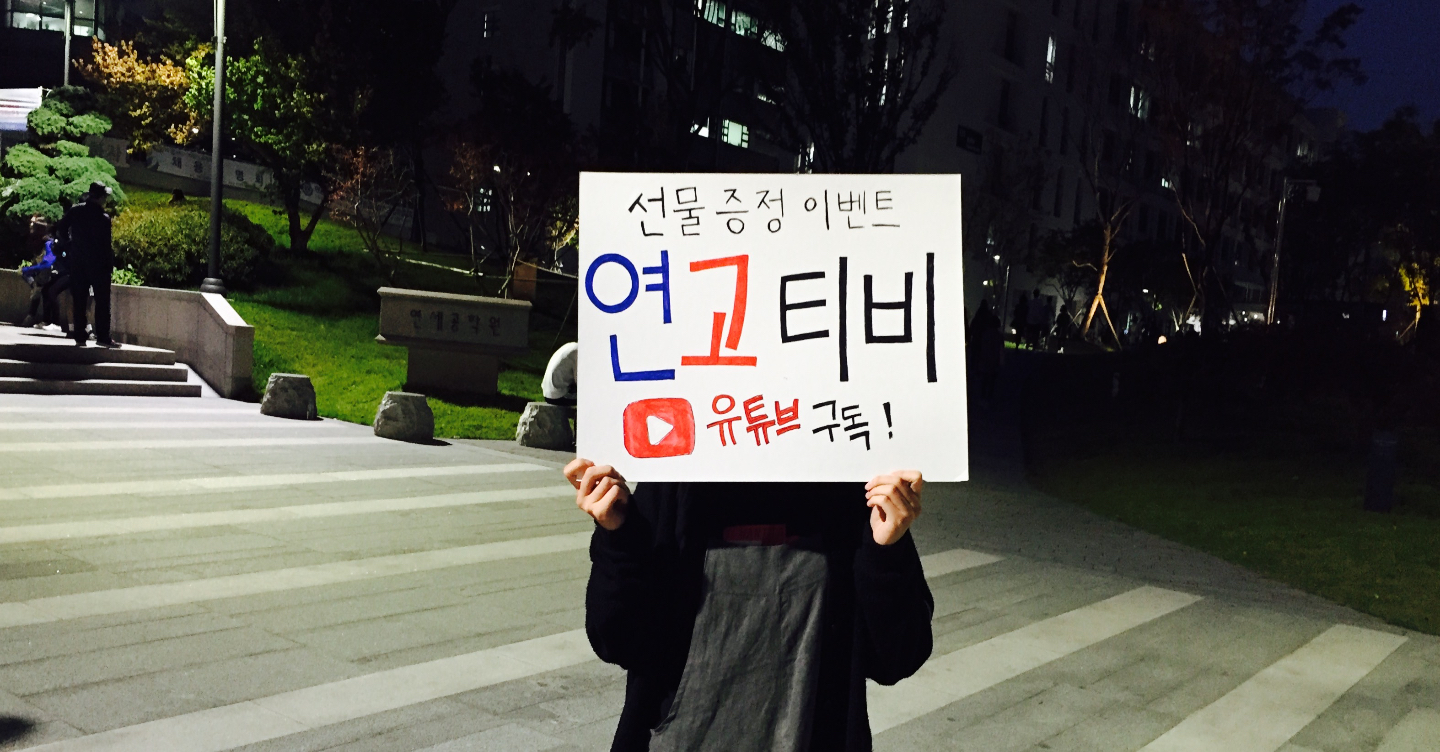 선물 증정 이벤트
연고티비
유튜브 구독!
연세공학원